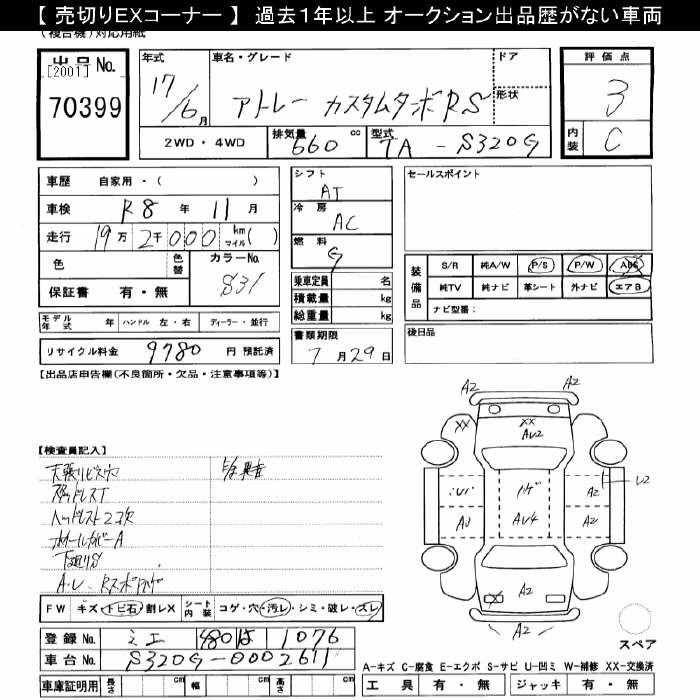 【 売切りEXコーナー 】 過去1年以上 オークション出品歴がない車両
(複合機)対応用紙
出品 No. [2001] 70399
年式 17/6月
車名・グレード アトレー カスタムターボRS
ドア
形状
2WD・4WD
排気量 660 cc
型式 TA - S320G
評価点 3
内装 C
車歴 自家用・( )
車検 R8 年 11 月
走行 19万2千000 km マイル( )
色
色替
カラーNo. S31
保証書 有・無
シフト AT
冷房 AC
燃料 G
乗車定員 名
積載量 kg
総重量 kg
セールスポイント
装備品 S/R 純A/W P/S P/W ABS
純TV 純ナビ 革シート 外ナビ エアB
ナビ型番:
モデル年式 年 ハンドル 左・右 ディーラー・並行
書類期限 7月29日
後日品
リサイクル料金 9780 円 預託済
【出品店申告欄(不良箇所・欠品・注意事項等)】
【検査員記入】
天張リビス穴
スタッドレスT
ヘッドレスト2コ欠
ホイールカバーA
下廻りS
A2 A2
XX XX XX
AU2
A2 U2
A3 AU4 A2
A2
A2
FW キズ・トビ石・割レX
シート内装 コゲ・穴・汚レ・シミ・破レ・スレ
スペア
登録 No. 480 は 1076
車台 No. S320G-0002611
A-キズ C-腐食 E-エクボ S-サビ U-凹ミ W-補修 XX-交換済
車庫証明用 長さ cm 幅 cm 高さ cm
工具 有・無 ジャッキ 有・無